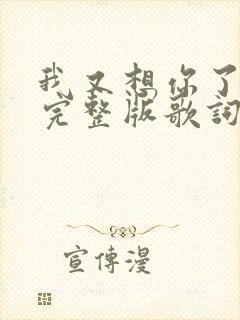 我又想你了
完整版歌詞
宣傳漫